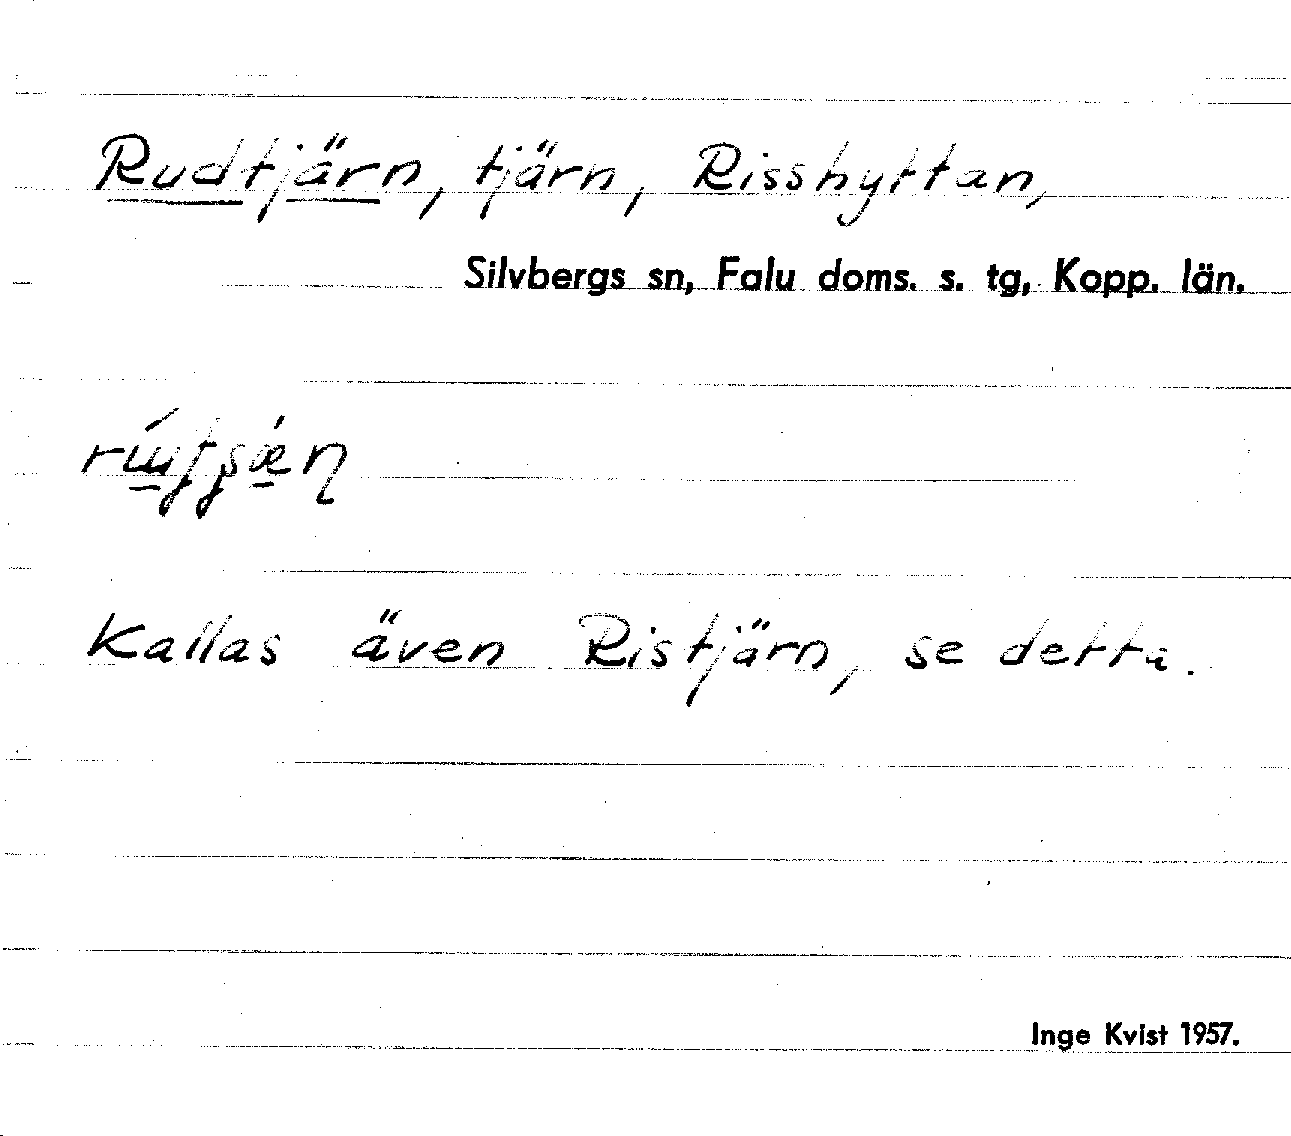 Rudtjärn, tjärn, Risshyttan,
Silvbergs sn, Falu doms. s. tg, Kopp. län.
Kallas även Ristjärn, se detta.
Inge Kvist 1957.